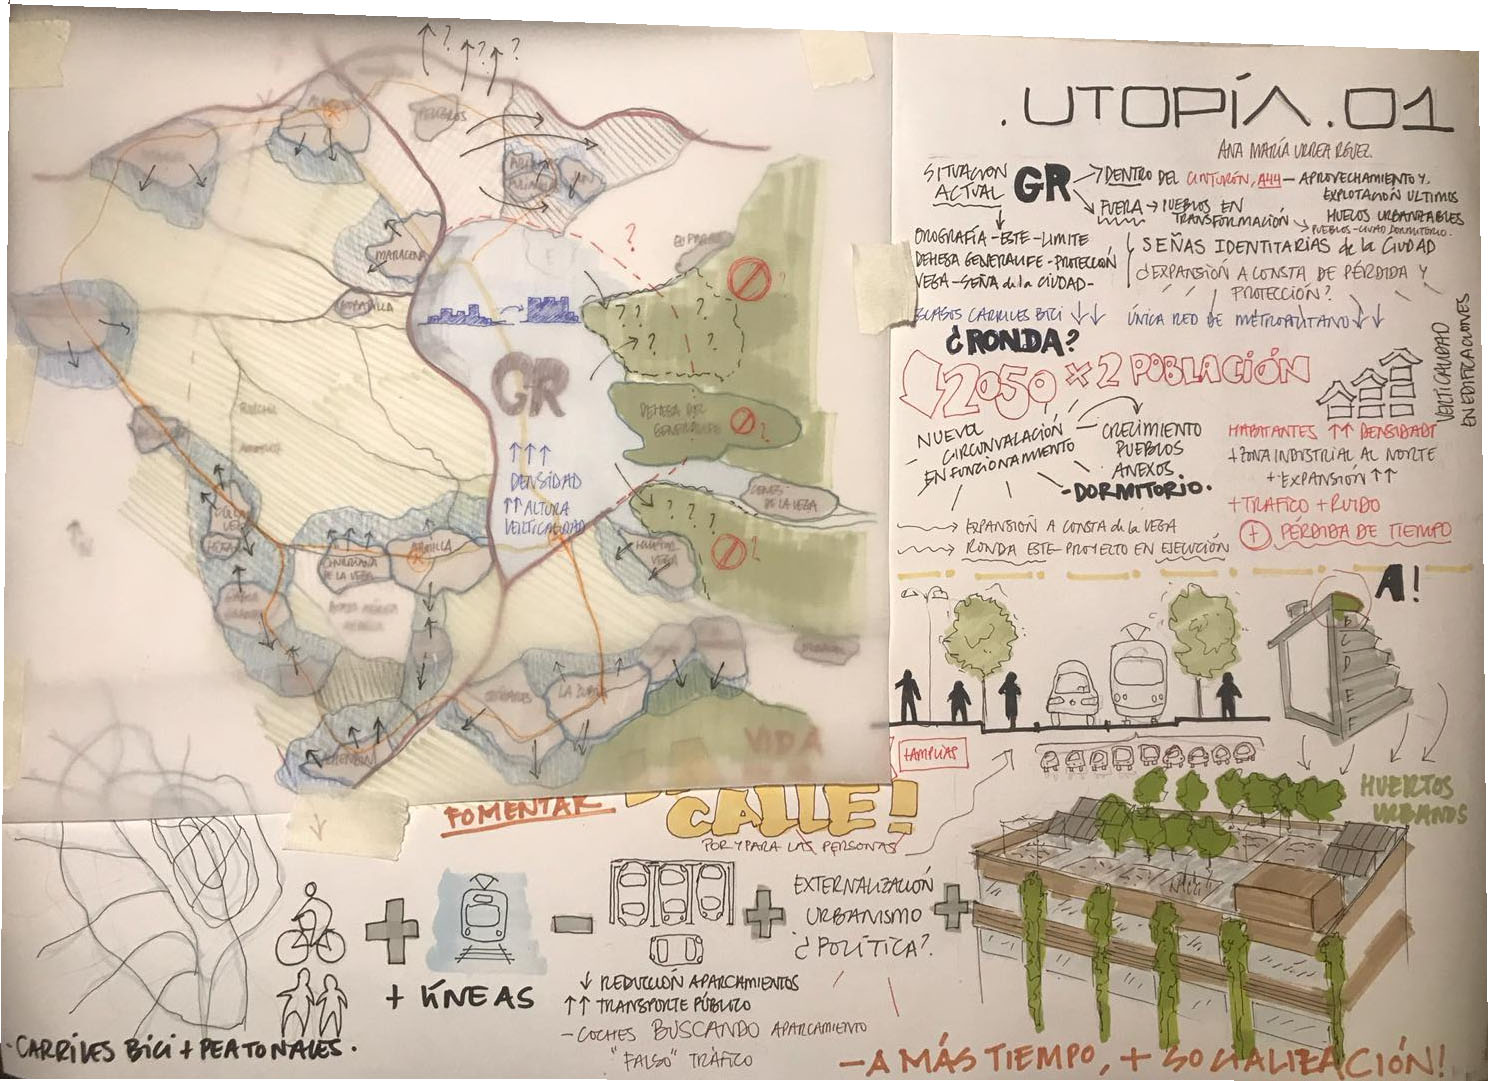 .UTOPÍA.01
ANA MARÍA URREA RGUEZ.
SITUACION
ACTUAL
GR
DENTRO DEL CINTURÓN, A44 — APROVECHAMIENTO Y
EXPLOTACIÓN ULTIMOS
HUECOS URBANIZABLES
FUERA → PUEBLOS EN
TRANSFORMACIÓN → PUEBLOS-CIUDAD DORMITORIO.
OROGRAFÍA - ESTE - LIMITE
DEHESA GENERALIFE - PROTECCIÓN
VEGA - SEÑA de la CIUDAD -
SEÑAS IDENTITARIAS de la CIUDAD
¿EXPANSIÓN A CONSTA DE PÉRDIDA Y
PROTECCIÓN?
ESCASOS CARRILES BICI ↓↓
ÚNICA RED DE METROPOLITANO ↓↓
¿RONDA?
2050 x2 POBLACIÓN
VERTICALIDAD
EN EDIFICACIONES
NUEVA
CIRCUNVALACIÓN
EN FUNCIONAMIENTO
CRECIMIENTO
PUEBLOS
ANEXOS
-DORMITORIO.
HABITANTES ↑↑ DENSIDAD↑
+ ZONA INDUSTRIAL AL NORTE
+ EXPANSIÓN ↑↑
+ TRAFICO + RUIDO
+ PÉRDIDA DE TIEMPO
EXPANSIÓN A CONSTA de la VEGA
RONDA ESTE - PROYECTO EN EJECUCIÓN
A!
B
C
D
E
F
HUERTOS
URBANOS
PELIGROS
MARACENA
GR
↑↑↑
DENSIDAD
↑↑ ALTURA
VERTICALIDAD
DEHESA DEL
GENERALIFE
CENES
DE LA VEGA
HUETOR
VEGA
CHURRIANA
DE LA VEGA
ARMILLA
OTURA
LA ZUBIA
VIDA
+AMPLIAS
FOMENTAR
CALLE!
POR Y PARA LAS PERSONAS
+ LÍNEAS
↓ REDUCCIÓN APARCAMIENTOS
↑↑ TRANSPORTE PÚBLICO
- COCHES BUSCANDO APARCAMIENTO
"FALSO" TRÁFICO
EXTERNALIZACIÓN
URBANISMO
¿POLÍTICA?
·CARRILES BICI + PEATONALES·
- A MÁS TIEMPO, + SOCIALIZACIÓN!